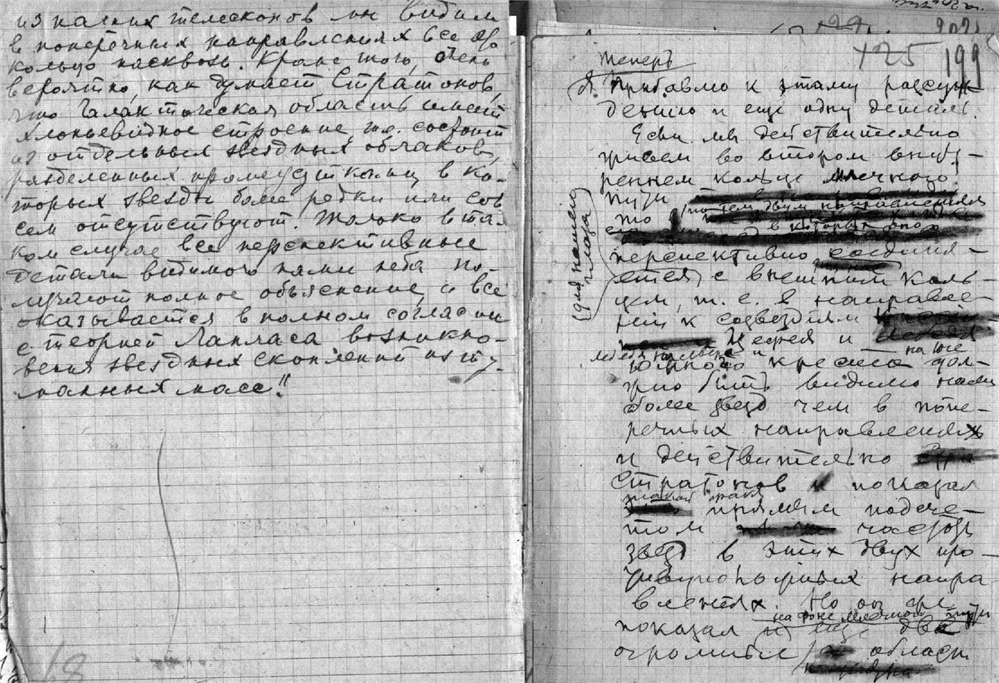 из наших телескопов мы видим
в поперечных направлениях все эти
кольца насквозь. Кроме того, очень
вероятно, как думает Стратонов,
что Галактическая область имеет
хлопьевидное строение т.е. состоит
из отдельных звездных облаков,
разделенных промежутками, в ко-
торых звезды более редки или сов
сем отсутствуют. Только в та-
ком случае все перспективные
детали видимого нами неба по-
лучают полное объяснение, и все
оказывается в полном согласии
с теорией Лапласа возникно-
вения звездных скоплений из ту-
манных масс!!
18
199
125
Теперь
Прибавлю к этому рассуж
дению и еще одну деталь.
Если мы действительно
живем во втором внут-
реннем кольце Млечного
пути
то
перспективно соединя-
ется с внешним коль-
цем, т.е. в направле-
нии к созвездиям
и
Южного креста дол-
жно быть видимо нами
более звезд чем в попе-
речных направлениях
и действительно
Стратонов показал
прямым подсче-
том частоты
звезд в этих двух про-
тивуположных напра
влениях. Но он же
на фоне Млечного пути
показал и еще две
огромные области